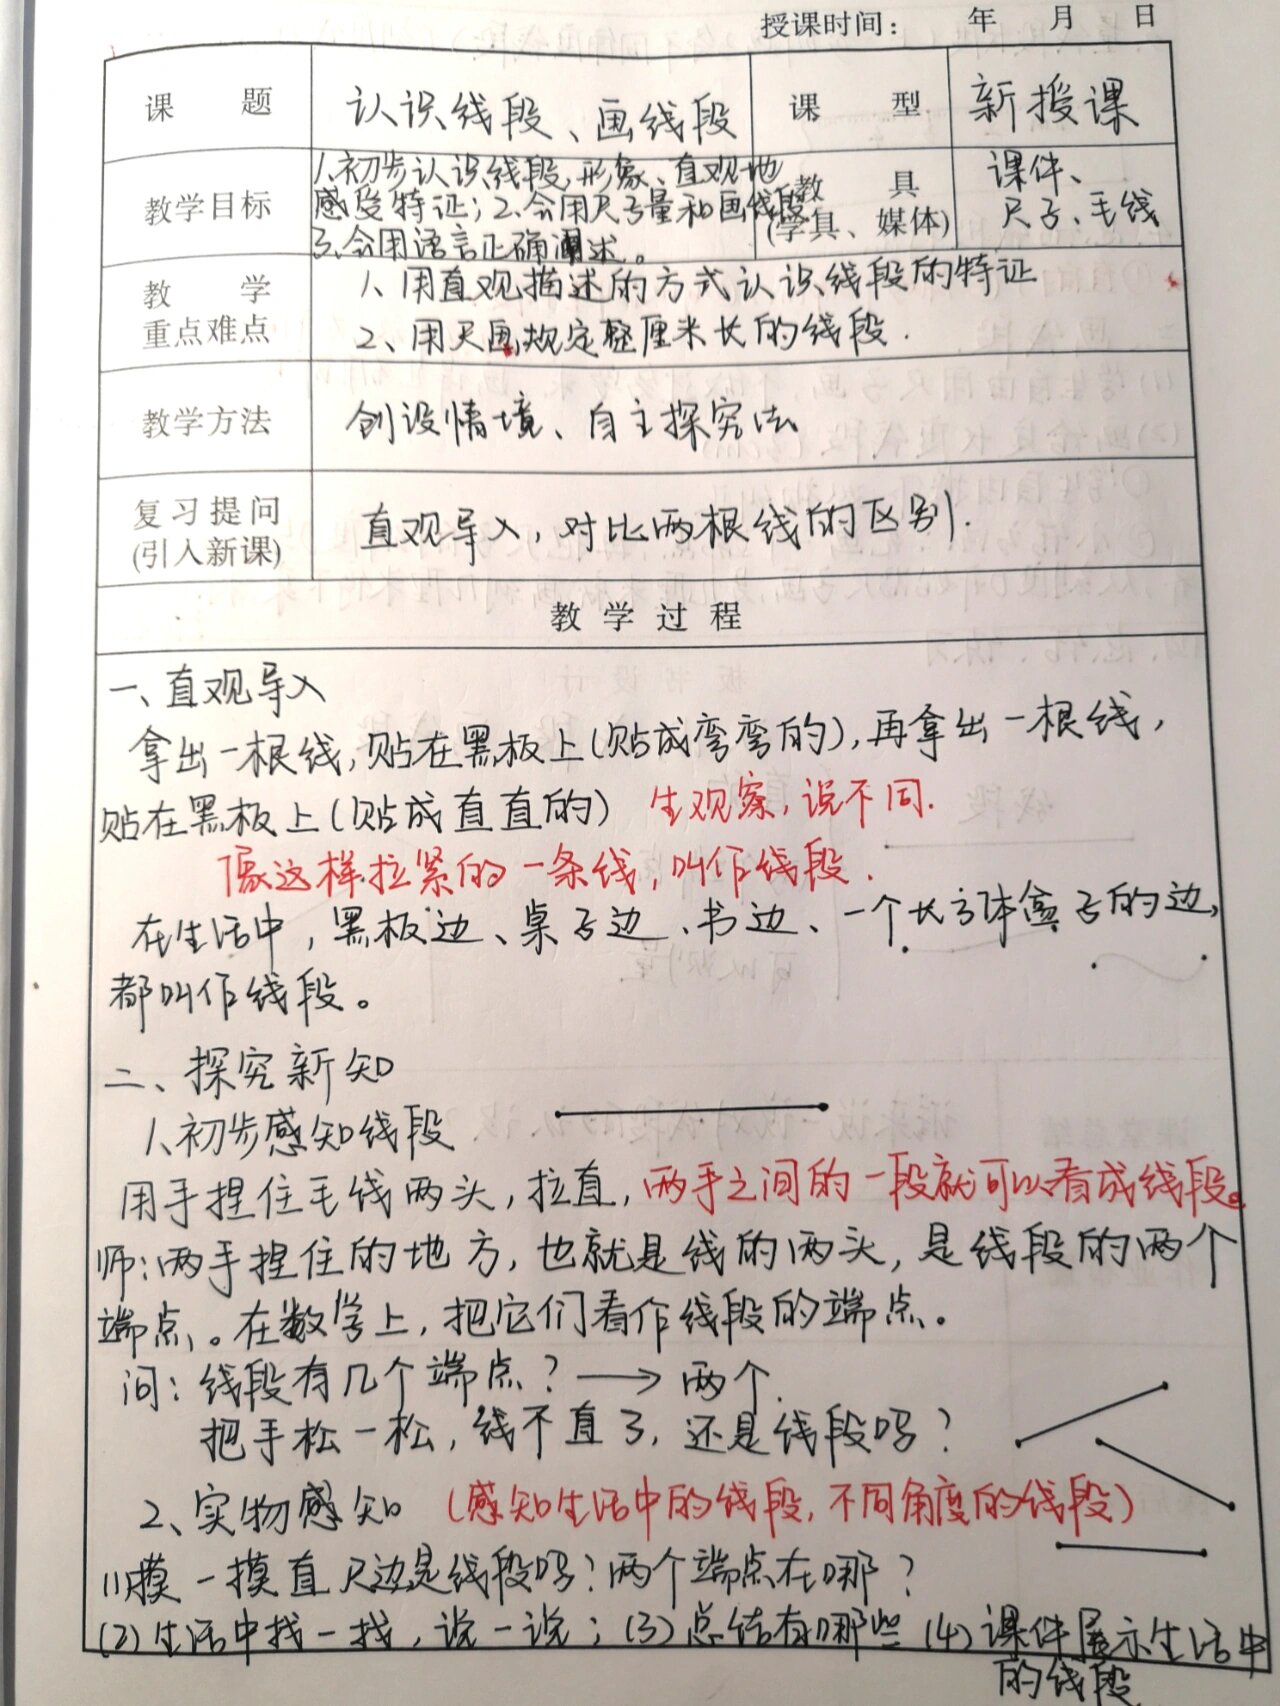 授课时间： 年 月 日
课 题 认识线段、画线段 课 型 新授课
教学目标 1、初步认识线段，形象、直观地
感受特征；2、会用尺子量和画线段
3、会用语言正确阐述。
教 具
(学具、媒体)
课件、
尺子、毛线
教 学
重点难点
1、用直观描述的方式认识线段的特征
2、用尺画规定整厘米长的线段.
教学方法 创设情境、自主探究法
复习提问
(引入新课)
直观导入，对比两根线的区别.
教 学 过 程
一、直观导入
拿出一根线，贴在黑板上(贴成弯弯的)，再拿出一根线，
贴在黑板上(贴成直直的) 生观察，说不同.
像这样拉紧的一条线，叫作线段.
在生活中，黑板边、桌子边、书边、一个长方体盒子的边，
都叫作线段。
二、探究新知
1、初步感知线段
用手捏住毛线两头，拉直，两手之间的一段就可以看成线段。
师：两手捏住的地方，也就是线的两头，是线段的两个
端点。在数学上，把它们看作线段的端点。
问：线段有几个端点？→两个.
把手松一松，线不直了，还是线段吗？
2、实物感知 (感知生活中的线段，不同角度的线段)
(1)摸一摸直尺边是线段吗？两个端点在哪？
(2)生活中找一找，说一说；(3)总结有哪些 (4)课件展示生活中
的线段